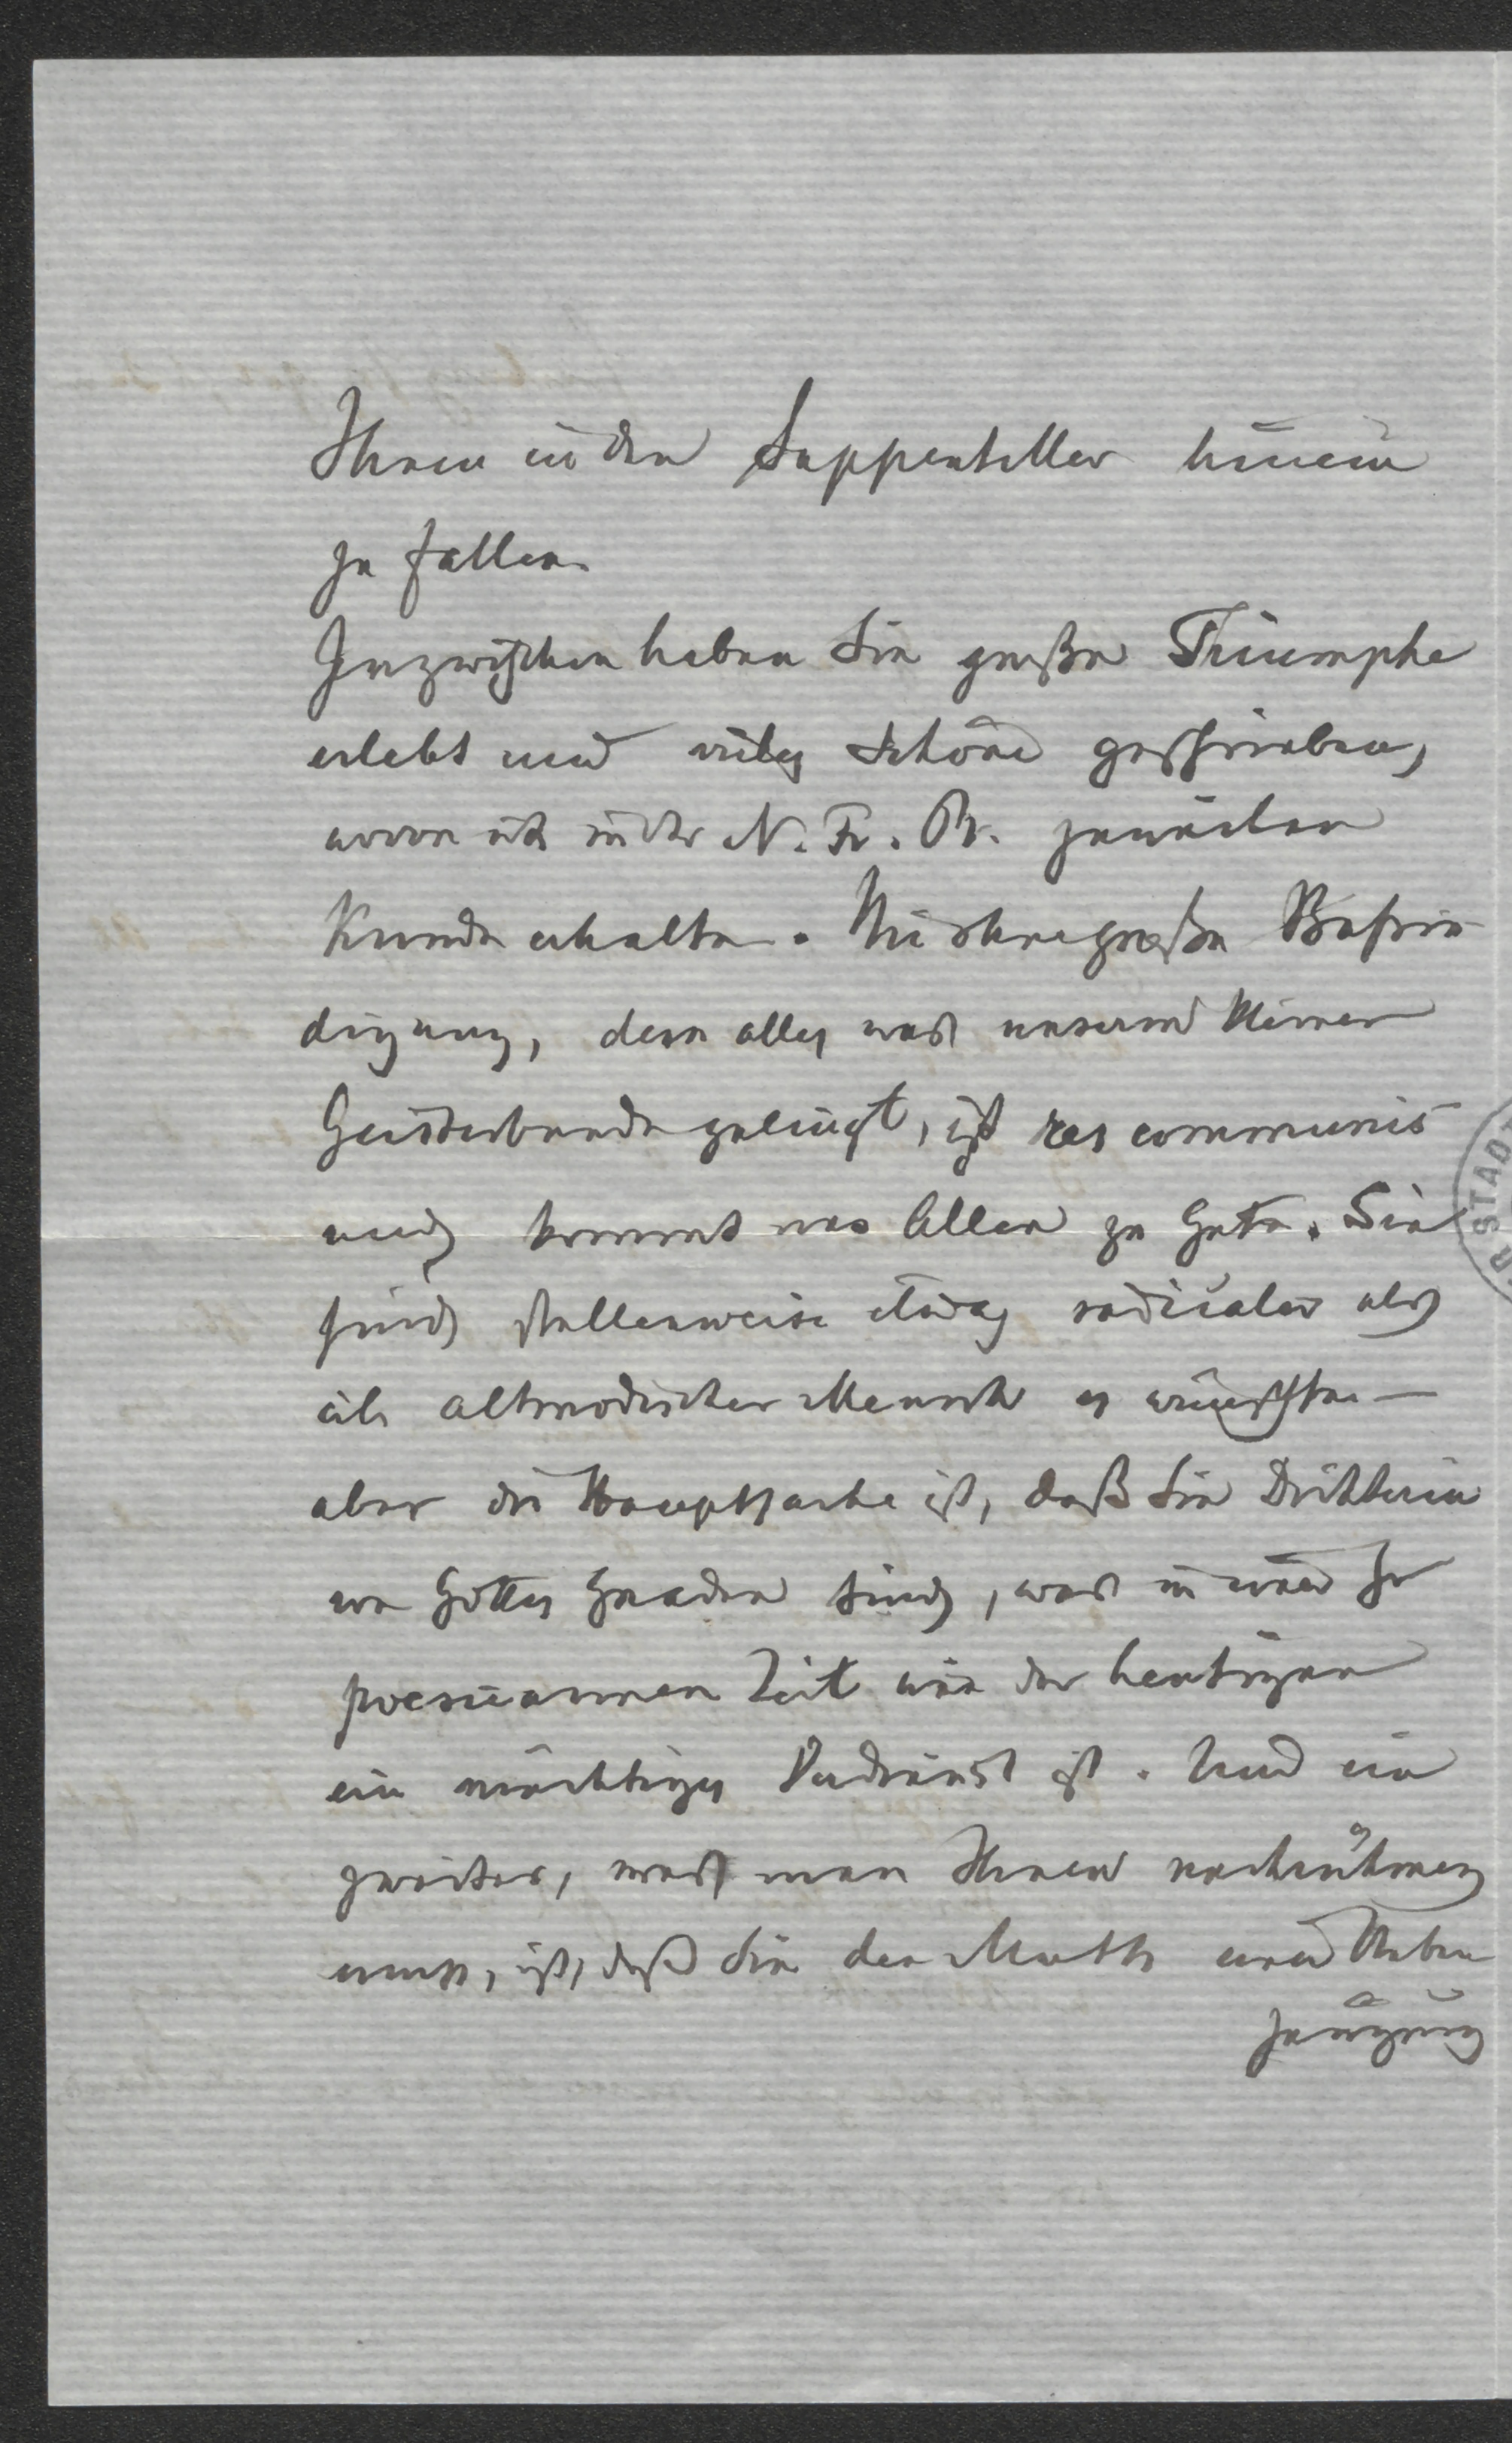 Ihnen in den Suppenteller hinein
zu fallen.
Inzwischen haben Sie große Triumphe
erlebt und vieles Schöne geschrieben,
wovon ich in der N. Fr. Pr. zuweilen
Kunde erhalten. Nicht ohne große Befrie
digung, denn alles was unserm kleinen
Geisterbunde gelingt, ist res communis
und kommt uns Allen zu Gute. Sie
sind stellenweise etwas radicaler als
ich altmodischer Mensch es wünschte —
aber die Hauptsache ist, daß Sie Dichterin
von Gottes Gnaden sind, was in einer so
poesiearmen Zeit wie der heutigen
ein mächtiges Verdienst ist. Und ein
zweites, was man Ihnen nachrühmen
muss, ist, daß Sie den Muth einer Ueber
zeugung
STADT